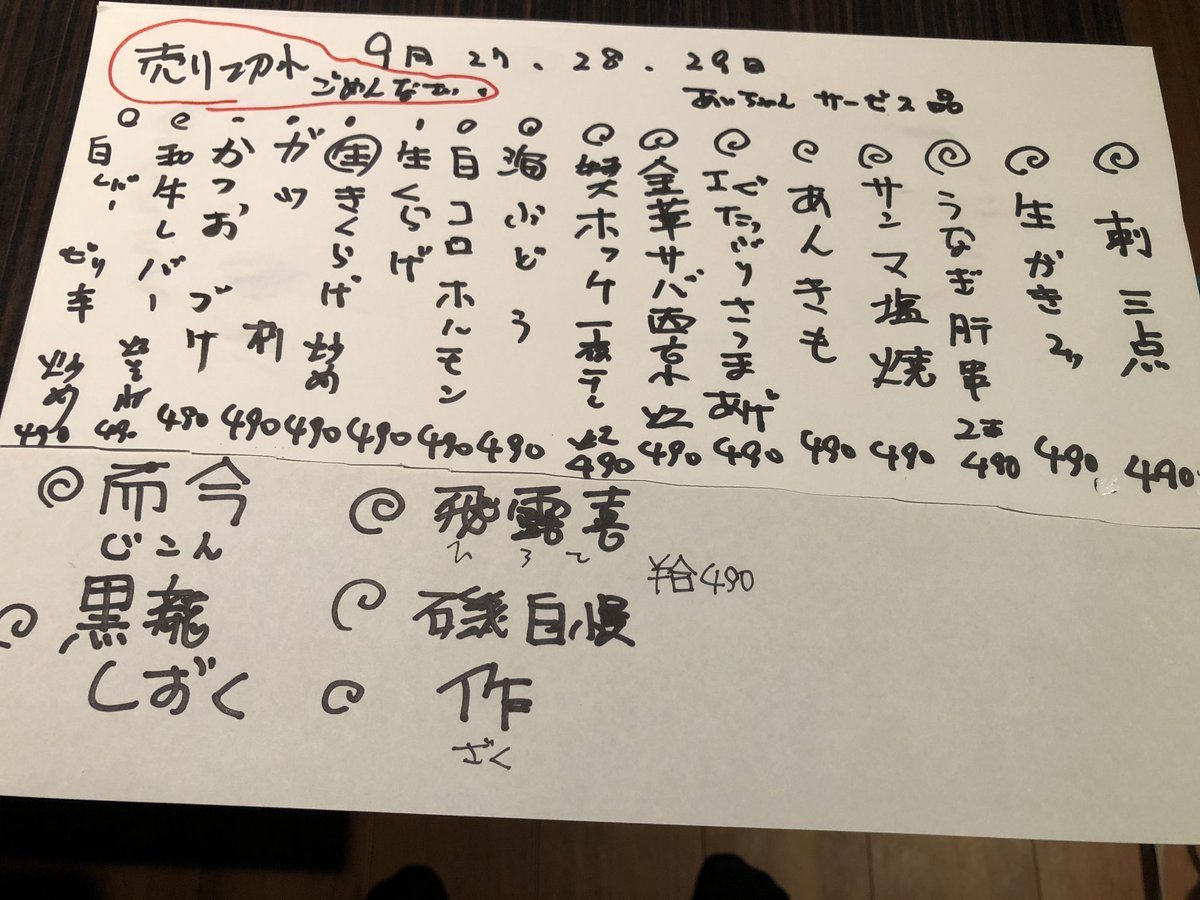 売り切れ
ごめんなさい。
9月 27、28、29日
あいちゃん サービス品
刺三点 490
生がき 2ヶ 490
うなぎ肝串 2本 490
サンマ塩焼 490
あんきも 490
エビたっぷりさつまあげ 490
金華サバ西京 490
ホッケ一夜干し 490
海ぶどう 490
白コロホルモン 490
生くらげ 490
生きくらげ炒め 490
ガツ刺 490
かつおづけ 490
和牛レバー 490
炒め 490
而今
じこん
飛露喜
ひろき
黒龍
しずく
磯自慢
作
ざく
半合490